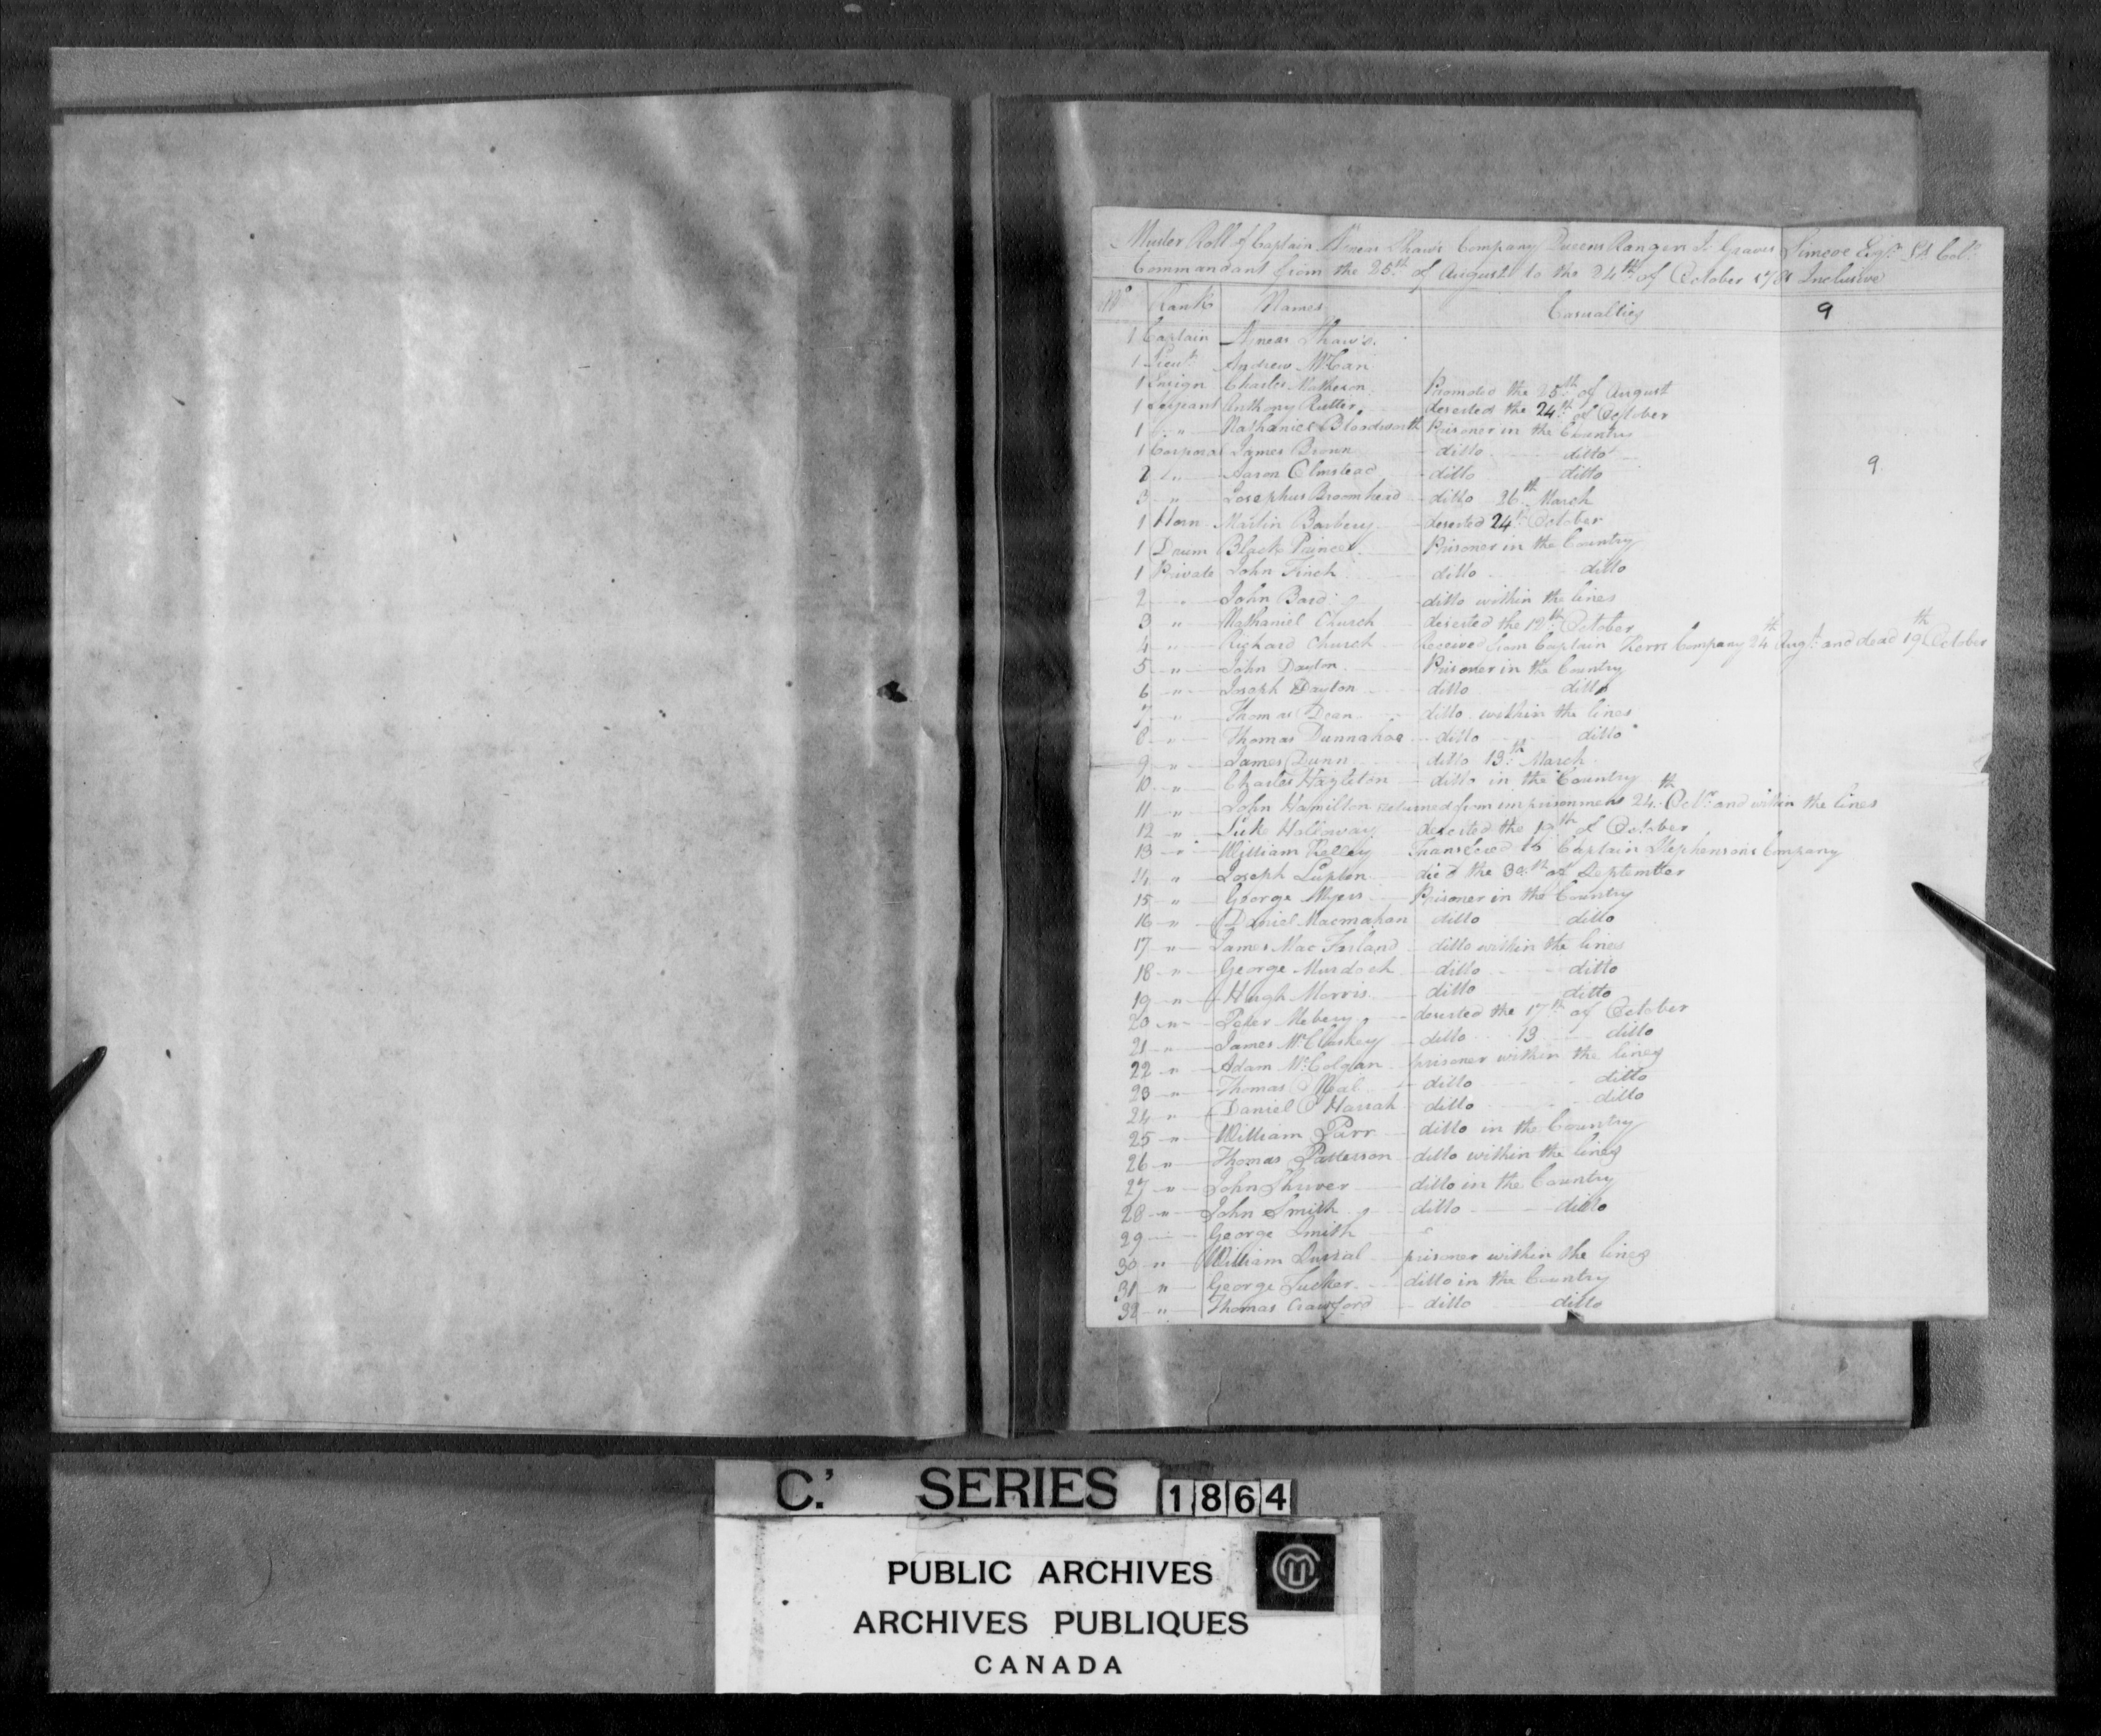 Muster Roll of Captain Æneas Shaw's Company Queens Rangers J. Graves Simcoe Esqr. Lt. Coll.
Commandant from the 25th of August to the 24th of October 1781 Inclusive
No Rank Names Casualties 9
1 Captain Æneas Shaw's
1 Lieut. Andrew McCan
1 Ensign Charles Matheson Promoted the 25th of August
1 Serjeant Anthony Rutter deserted the 24th of October
1 " Nathaniel Bloodworth Prisoner in the Country
1 Corporal James Brown ditto ditto
2 " Aaron Olmstead ditto ditto 9
3 " Josephus Broomhead ditto 26th March
1 Horn Martin Barbery deserted 24th October
1 Drum Black Prince Prisoner in the Country
1 Private John Finch ditto ditto
2 " John Bard ditto within the lines
3 " Nathaniel Church deserted the 12th October
4 " Richard Church Received from Captain Kerrs Company 24th Augt. and dead 19th October
5 " John Dayton Prisoner in the Country
6 " Joseph Dayton ditto ditto
7 " Thomas Dean ditto within the lines
8 " Thomas Dunnahoe ditto ditto
9 " James Dunn ditto 13th March
10 " Charles Hazleton ditto in the Country
11 " John Hamilton returned from imprisonment 24th Octr. and within the lines
12 " Luke Halloway deserted the 19th of October
13 " William Kelley Transfered to Captain Stephensons Company
14 " Joseph Lupton died the 30th of September
15 " George Myers Prisoner in the Country
16 " Daniel Macmahan ditto ditto
17 " James Mac Farland ditto within the lines
18 " George Murdoch ditto ditto
19 " Hugh Morris ditto ditto
20 " Peter Mebery deserted the 17th of October
21 " James McClaskey ditto 13 ditto
22 " Adam McColgan prisoner within the lines
23 " Thomas Neal ditto ditto
24 " Daniel O Harrah ditto ditto
25 " William Parr ditto in the Country
26 " Thomas Patterson ditto within the lines
27 " John Shiver ditto in the Country
28 " John Smith ditto ditto
29 " George Smith "
30 " William Dussal prisoner within the lines
31 " George Tucker ditto in the Country
32 " Thomas Crawford ditto ditto
C.' SERIES 1864
PUBLIC ARCHIVES
ARCHIVES PUBLIQUES
CANADA